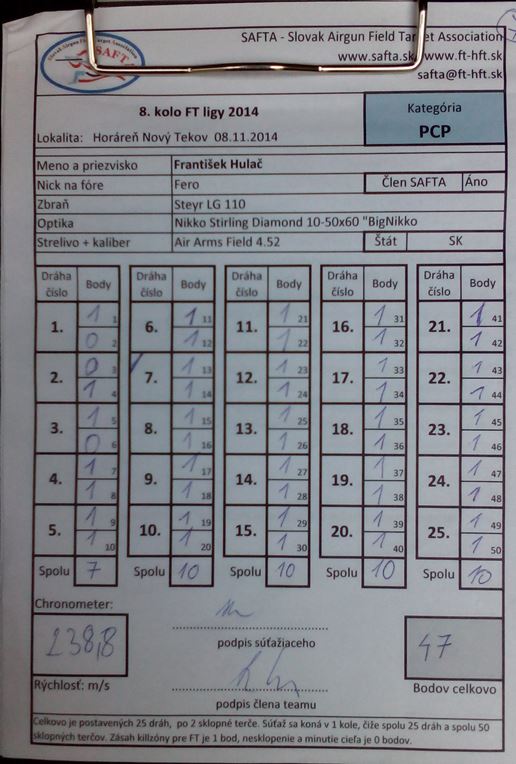 Slovak Airgun Field Target Association
SAFTA
SAFTA - Slovak Airgun Field Target Association
www.safta.sk www.ft-hft.sk
safta@ft-hft.sk
8. kolo FT ligy 2014
Kategória
PCP
Lokalita: Horáreň Nový Tekov 08.11.2014
Meno a priezvisko František Hulač
Nick na fóre Fero Člen SAFTA Áno
Zbraň Steyr LG 110
Optika Nikko Stirling Diamond 10-50x60 "BigNikko
Strelivo + kaliber Air Arms Field 4.52 Štát SK
Dráha číslo Body Dráha číslo Body Dráha číslo Body Dráha číslo Body Dráha číslo Body
1. 1 1 6. 1 11 11. 1 21 16. 1 31 21. 1 41
0 2 1 12 1 22 1 32 1 42
2. 0 3 7. 1 13 12. 1 23 17. 1 33 22. 1 43
1 4 1 14 1 24 1 34 1 44
3. 1 5 8. 1 15 13. 1 25 18. 1 35 23. 1 45
0 6 1 16 1 26 1 36 1 46
4. 1 7 9. 1 17 14. 1 27 19. 1 37 24. 1 47
1 8 1 18 1 28 1 38 1 48
5. 1 9 10. 1 19 15. 1 29 20. 1 39 25. 1 49
1 10 1 20 1 30 1 40 1 50
Spolu 7 Spolu 10 Spolu 10 Spolu 10 Spolu 10
Chronometer:
238,8
podpis súťažiaceho
47
Rýchlosť: m/s
podpis člena teamu
Bodov celkovo
Celkovo je postavených 25 dráh, po 2 sklopné terče. Súťaž sa koná v 1 kole, čiže spolu 25 dráh a spolu 50
sklopných terčov. Zásah killzóny pre FT je 1 bod, nesklopenie a minutie cieľa je 0 bodov.